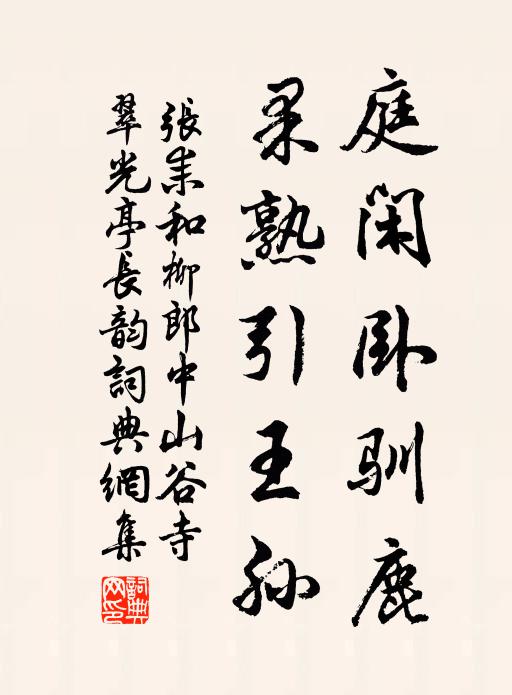 庭閑臥馴鹿
果熟引王孫
張耒和柳郎中山谷寺
翠光亭長韵詞典網集
詞典网印